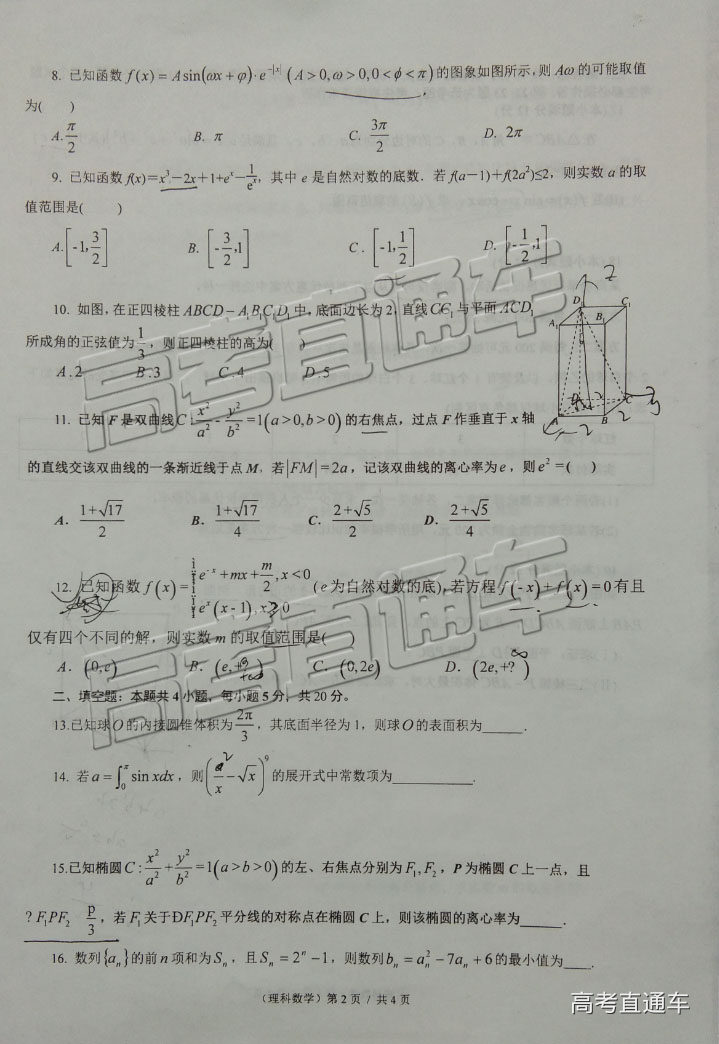 8. 已知函数 f(x) = A sin(ωx + φ)·e^{-|x|} (A > 0, ω > 0, 0 < ϕ < π) 的图象如图所示, 则 Aω 的可能取值
为( )
A. π/2 B. π C. 3π/2 D. 2π
9. 已知函数 f(x)=x³-2x+1+eˣ-1/eˣ, 其中 e 是自然对数的底数. 若 f(a-1)+f(2a²)≤2, 则实数 a 的取
值范围是( )
A. [-1, 3/2] B. [-3/2, 1] C. [-1, 1/2] D. [-1/2, 1]
10. 如图, 在正四棱柱 ABCD-A₁B₁C₁D₁ 中, 底面边长为 2, 直线 CC₁ 与平面 ACD₁
所成角的正弦值为 1/3, 则正四棱柱的高为( )
A. 2 B. 3 C. 4 D. 5
D₁ C₁ A₁ B₁ A B C z y 2 2
11. 已知 F 是双曲线 C: x²/a² - y²/b² = 1 (a>0, b>0) 的右焦点, 过点 F 作垂直于 x 轴
的直线交该双曲线的一条渐近线于点 M, 若 |FM| = 2a, 记该双曲线的离心率为 e, 则 e² = ( )
A. (1+√17)/2 B. (1+√17)/4 C. (2+√5)/2 D. (2+√5)/4
12. 已知函数 f(x) = ì e^{-x} + mx + m/2, x < 0 ï eˣ(x-1), x ≥ 0 (e 为自然对数的底), 若方程 f(-x) + f(x) = 0 有且
仅有四个不同的解, 则实数 m 的取值范围是( )
A. (0, e) B. (e, +? +∞ C. (0, 2e) D. (2e, +?) ∞
二、填空题: 本题共 4 小题, 每小题 5 分, 共 20 分.
13.已知球 O 的内接圆锥体积为 2π/3, 其底面半径为 1, 则球 O 的表面积为_____.
14. 若 a = ∫₀^π sin xdx, 则 (a/x - √x)⁹ 的展开式中常数项为_____.
2
15.已知椭圆 C: x²/a² + y²/b² = 1 (a > b > 0) 的左、右焦点分别为 F₁, F₂, P 为椭圆 C 上一点, 且
?F₁PF₂ p/3, 若 F₁ 关于ÐF₁PF₂ 平分线的对称点在椭圆 C 上, 则该椭圆的离心率为_____.
16. 数列 {aₙ} 的前 n 项和为 Sₙ, 且 Sₙ = 2ⁿ - 1, 则数列 bₙ = aₙ² - 7aₙ + 6 的最小值为____.
(理科数学) 第 2 页 / 共 4 页
高考直通车
高考直通车
高考直通车